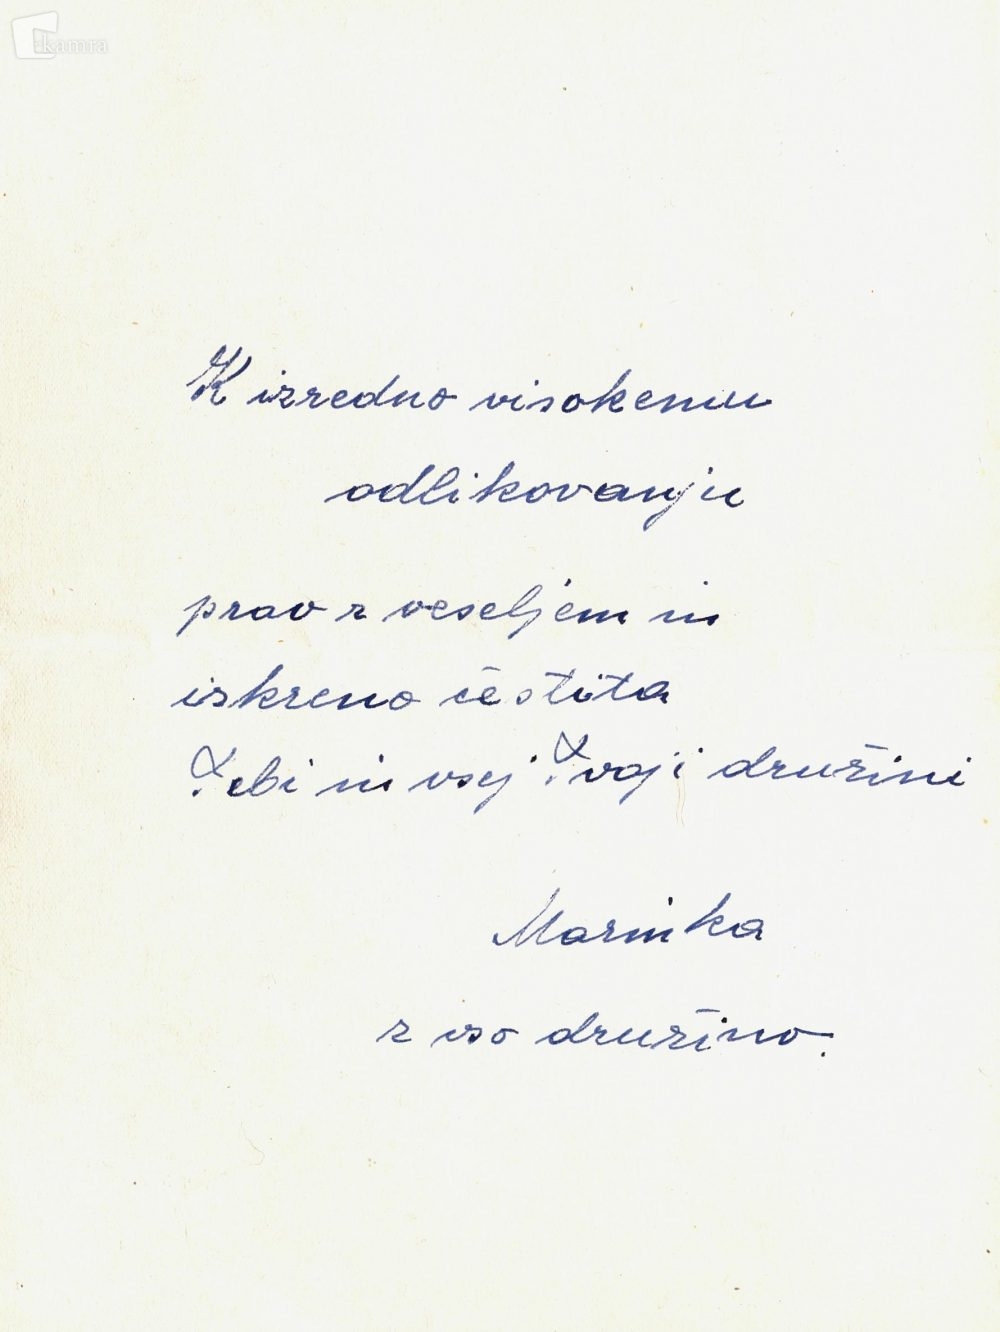 kamra
K izredno visokemu
odlikovanju
prav z veseljem in
iskreno čestita
Tebi in vsej Tvoji družini
Marinka
z vso družino.